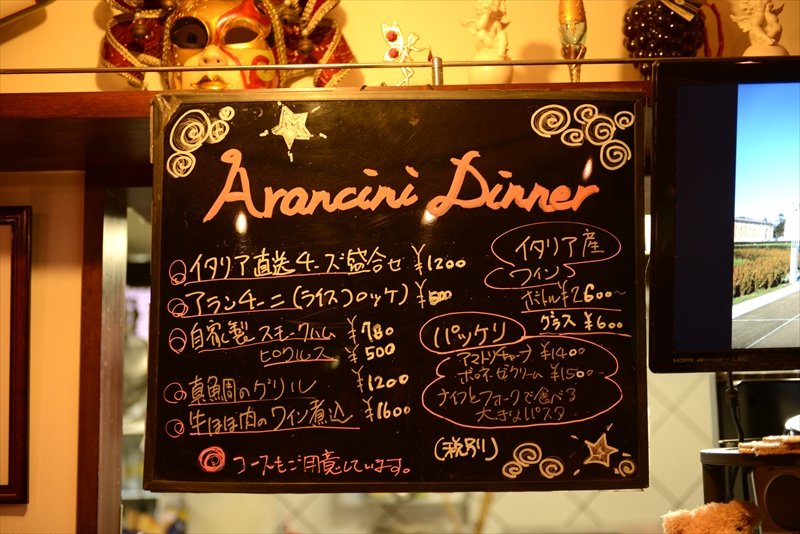 Arancini Dinner
イタリア直送チーズ盛合せ ¥1200
アランチーニ(ライスコロッケ)
自家製 スモークハム ¥780
ピクルス ¥500
真鯛のグリル ¥1200
牛ほほ肉のワイン煮込 ¥1600
コースもご用意しています。
イタリア産
ワイン
ボトル ¥2600~
グラス ¥600
パッケリ
アマトリチャーナ ¥1400
ボロネーゼクリーム ¥1500
ナイフとフォークで食べる
大きなパスタ
(税別)
HDMI